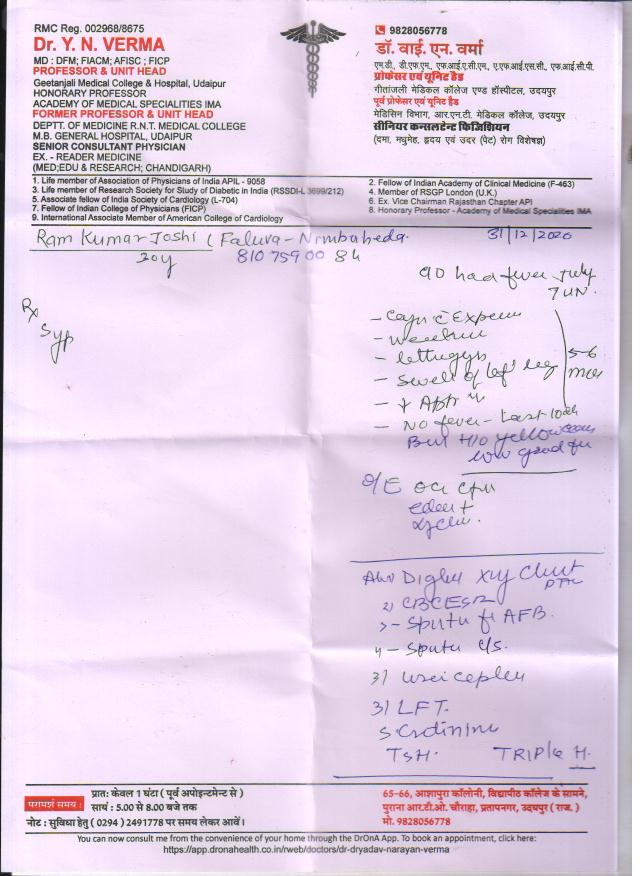 RMC Reg. 002968/8675
Dr. Y. N. VERMA
MD : DFM; FIACM; AFISC ; FICP
PROFESSOR & UNIT HEAD
Geetanjali Medical College & Hospital, Udaipur
HONORARY PROFESSOR
ACADEMY OF MEDICAL SPECIALITIES IMA
FORMER PROFESSOR & UNIT HEAD
DEPTT. OF MEDICINE R.N.T. MEDICAL COLLEGE
M.B. GENERAL HOSPITAL, UDAIPUR
SENIOR CONSULTANT PHYSICIAN
EX. - READER MEDICINE
(MED;EDU & RESEARCH; CHANDIGARH)
9828056778
डॉ. वाई. एन. वर्मा
एम.डी., डी.एफ.एम., एफ.आई.ए.सी.एम., ए.एफ.आई.एस.सी., एफ.आई.सी.पी.
प्रोफेसर एवं यूनिट हैड
गीतांजली मेडिकल कॉलेज एण्ड हॉस्पीटल, उदयपुर
पूर्व प्रोफेसर एवं यूनिट हैड
मेडिसिन विभाग, आर.एन.टी. मेडिकल कॉलेज, उदयपुर
सीनियर कन्सलटेन्ट फिजिशियन
(दमा, मधुमेह, हृदय एवं उदर (पेट) रोग विशेषज्ञ)
1. Life member of Association of Physicians of India APIL - 9058
2. Fellow of Indian Academy of Clinical Medicine (F-463)
3. Life member of Research Society for Study of Diabetic in India (RSSDI-L 3699/212)
4. Member of RSGP London (U.K.)
5. Associate fellow of India Society of Cardiology (L-704)
6. Ex. Vice Chairman Rajasthan Chapter API
7. Fellow of Indian College of Physicians (FICP)
8. Honorary Professor - Academy of Medical Specialities IMA
9. International Associate Member of American College of Cardiology
Ram Kumar Joshi ( Faluva - Nimbaheda. 31/12/2020
20y 810 759 00 84
C/O had fever July
Rx
Syp
- swell of left leg
5-6
- No fever - Last 10d
But H/O yellow
low
O/E
Adv Digital Xray Chest
PA
2) CBC ESR
- Sputu for AFB.
4 - Sputu C/S.
3)
3) LFT.
S Cratinine
TSH. TRIPLE H.
परामर्श समय :
प्रातः केवल 1 घंटा ( पूर्व अपोइन्टमेन्ट से )
सायं : 5.00 से 8.00 बजे तक
नोट : सुविधा हेतु ( 0294 ) 2491778 पर समय लेकर आवें।
65-66, आशापुरा कॉलोनी, विद्यापीठ कॉलेज के सामने,
पुराना आर.टी.ओ. चौराहा, प्रतापनगर, उदयपुर ( राज. )
मो. 9828056778
You can now consult me from the convenience of your home through the DrOnA App. To book an appointment, click here:
https://app.dronahealth.co.in/rweb/doctors/dr-dryadav-narayan-verma